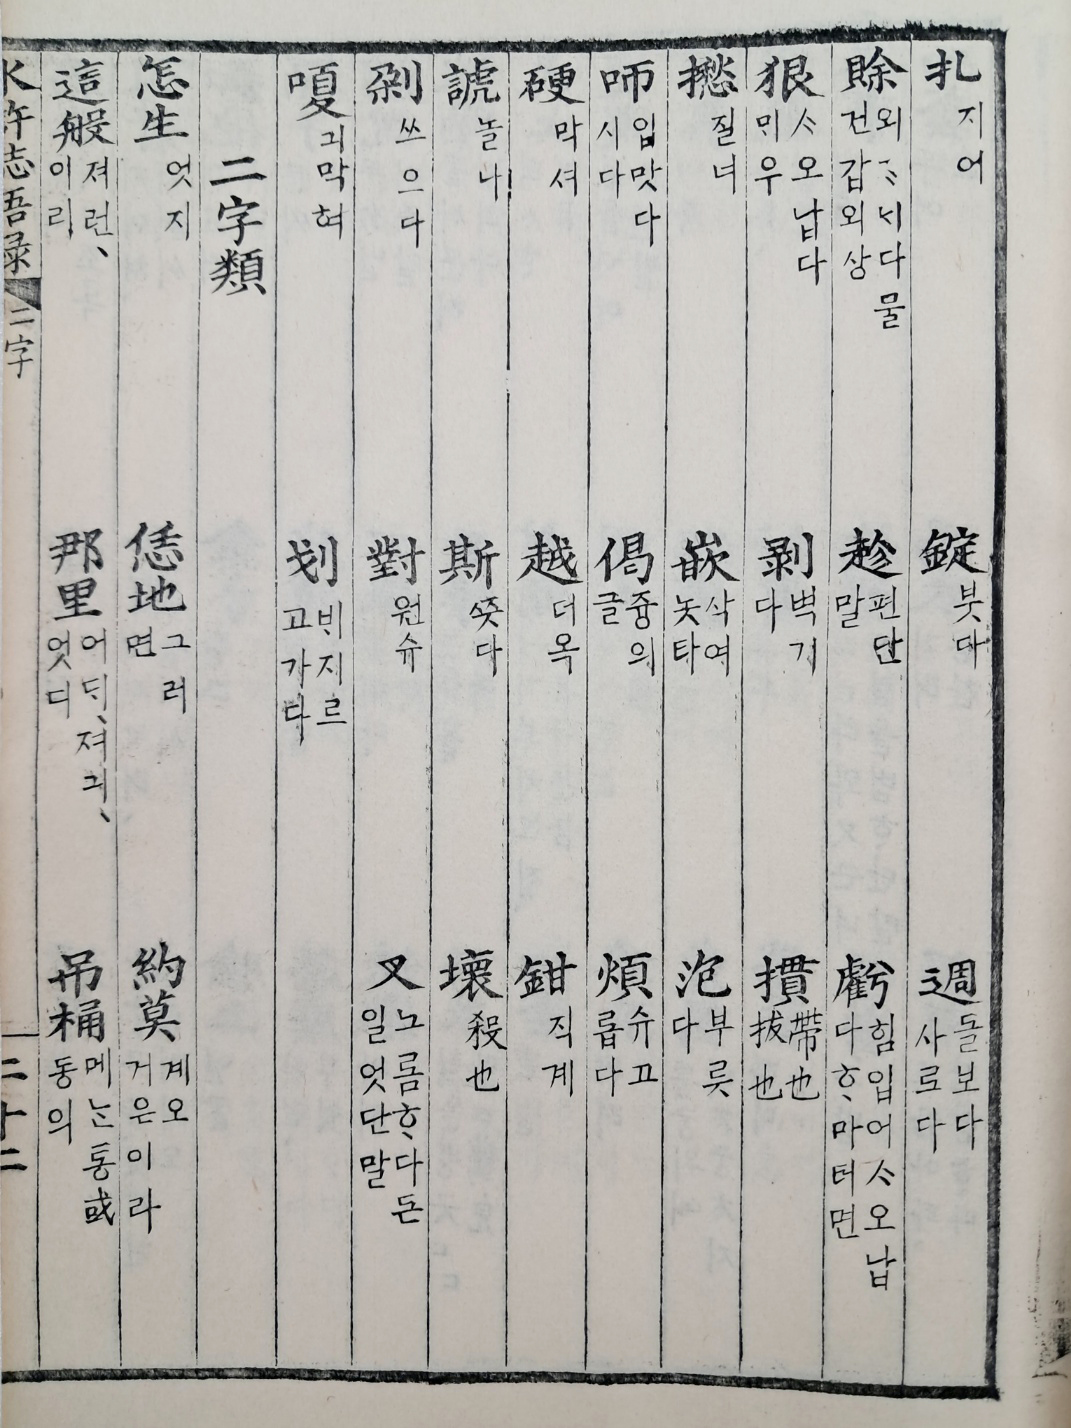 扎 지어 錠 붓다 週 돌보다사르다
賖 물건갑외상 趁 편단말 虧 힘입어ᄉᆞ오납다ᄒᆞ마터면
狠 ᄉᆞ오납다믜우 剥 벽기다 摜 帶也拔也
질녀 嵌 삭여놋타 泡 부릇다
咂 입맛다시다 偈 즁의글 煩 슈고롭다
硬 막셔 越 더옥 鉗 직계
諕 놀나 斯 ᄶᅩᆺ다 壞 殺也
剁 쓰으다 對 원슈 叉 노름ᄒᆞ다돈일엇단말
嗄 긔막혀 划 ᄇᆡ지르고가다
二字類
怎生 엇지 恁地 그러면 約莫 계오거은이라
這般 져런、이리 那里 어ᄃᆡ、져긔、엇디 吊桶 메ᄂᆞᆫ통或동의
水滸志語錄 二字 二十二